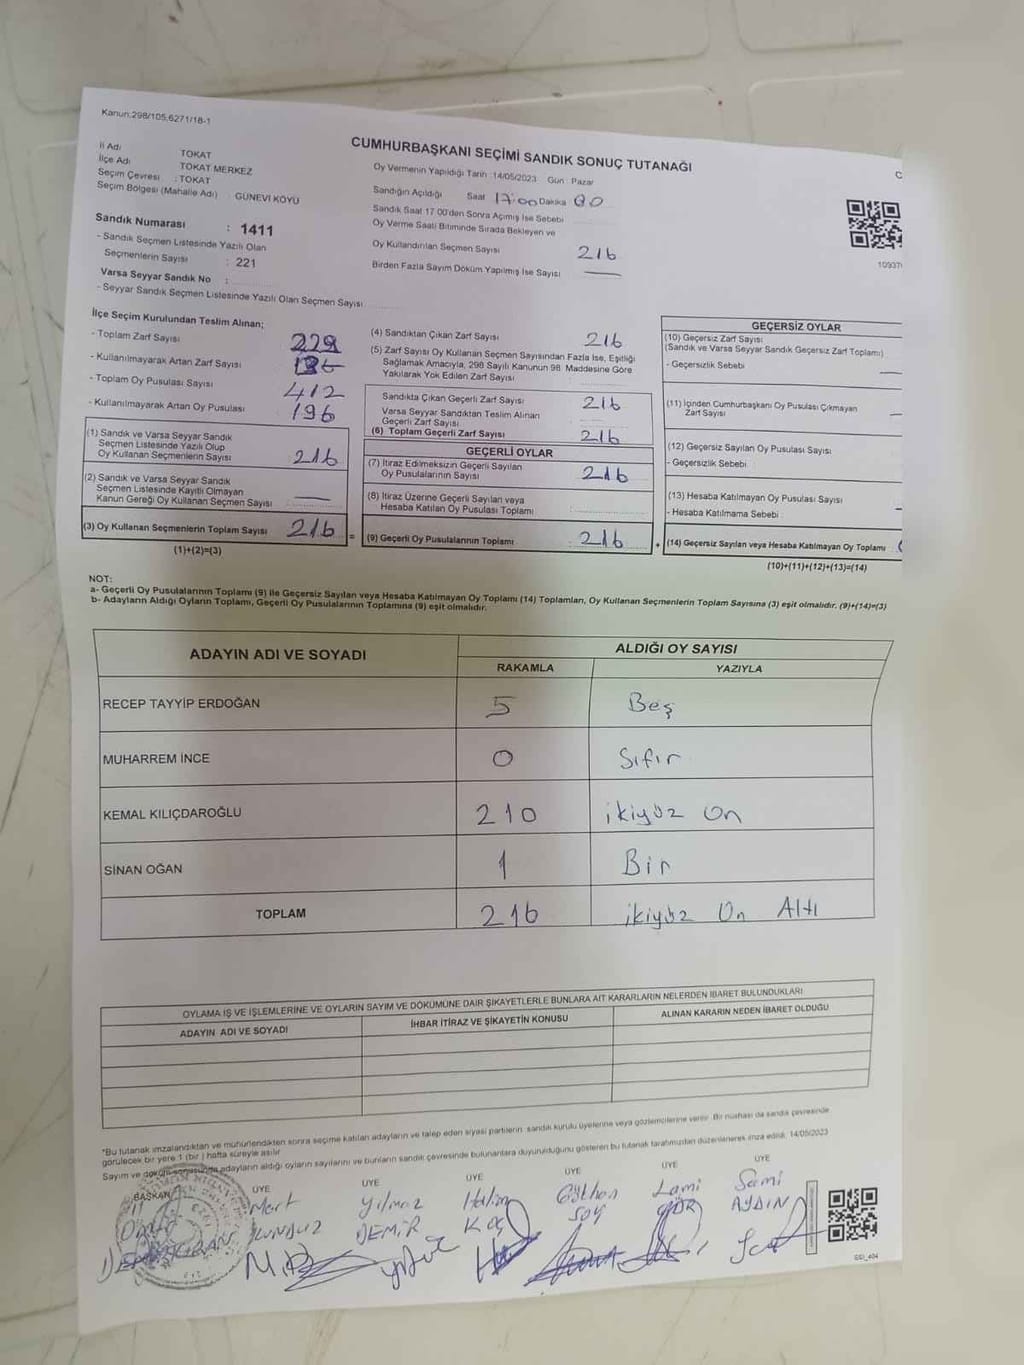 Kanun:298/105,6271/18-1
CUMHURBAŞKANI SEÇİMİ SANDIK SONUÇ TUTANAĞI
İl Adı TOKAT
İlçe Adı TOKAT MERKEZ
Seçim Çevresi : TOKAT
Seçim Bölgesi (Mahalle Adı) : GÜNEVİ KÖYÜ
Oy Vermenin Yapıldığı Tarih :14/05/2023 Gün : Pazar
Sandığın Açıldığı Saat 17:00 Dakika 00
Sandık Saat 17 00'den Sonra Açılmış İse Sebebi
Oy Verme Saati Bitiminde Sırada Bekleyen ve
Oy Kullandırılan Seçmen Sayısı 216
Birden Fazla Sayım Döküm Yapılmış İse Sayısı —
Sandık Numarası : 1411
- Sandık Seçmen Listesinde Yazılı Olan
Seçmenlerin Sayısı : 221
Varsa Seyyar Sandık No :
- Seyyar Sandık Seçmen Listesinde Yazılı Olan Seçmen Sayısı
İlçe Seçim Kurulundan Teslim Alınan;
- Toplam Zarf Sayısı
- Kullanılmayarak Artan Zarf Sayısı
- Toplam Oy Pusulası Sayısı 412
- Kullanılmayarak Artan Oy Pusulası 196
(1) Sandık ve Varsa Seyyar Sandık
Seçmen Listesinde Yazılı Olup
Oy Kullanan Seçmenlerin Sayısı 216
(2) Sandık ve Varsa Seyyar Sandık
Seçmen Listesinde Kayıtlı Olmayan
Kanun Gereği Oy Kullanan Seçmen Sayısı —
(3) Oy Kullanan Seçmenlerin Toplam Sayısı 216 =
(1)+(2)=(3)
(4) Sandıktan Çıkan Zarf Sayısı 216
(5) Zarf Sayısı Oy Kullanan Seçmen Sayısından Fazla İse, Eşitliği
Sağlamak Amacıyla, 298 Sayılı Kanunun 98. Maddesine Göre
Yakılarak Yok Edilen Zarf Sayısı
Sandıkta Çıkan Geçerli Zarf Sayısı 216
Varsa Seyyar Sandıktan Teslim Alınan
Geçerli Zarf Sayısı
(6) Toplam Geçerli Zarf Sayısı 216
GEÇERLİ OYLAR
(7) İtiraz Edilmeksizin Geçerli Sayılan
Oy Pusulalarının Sayısı 216
(8) İtiraz Üzerine Geçerli Sayılan veya
Hesaba Katılan Oy Pusulası Toplamı
(9) Geçerli Oy Pusulalarının Toplamı : 216 +
GEÇERSİZ OYLAR
(10) Geçersiz Zarf Sayısı
(Sandık ve Varsa Seyyar Sandık Geçersiz Zarf Toplamı)
- Geçersizlik Sebebi
(11) İçinden Cumhurbaşkanı Oy Pusulası Çıkmayan
Zarf Sayısı
(12) Geçersiz Sayılan Oy Pusulası Sayısı
- Geçersizlik Sebebi
(13) Hesaba Katılmayan Oy Pusulası Sayısı
- Hesaba Katılmama Sebebi
(14) Geçersiz Sayılan veya Hesaba Katılmayan Oy Toplamı
(10)+(11)+(12)+(13)=(14)
NOT:
a- Geçerli Oy Pusulalarının Toplamı (9) ile Geçersiz Sayılan veya Hesaba Katılmayan Oy Toplamı (14) Toplamları, Oy Kullanan Seçmenlerin Toplam Sayısına (3) eşit olmalıdır. (9)+(14)=(3)
b- Adayların Aldığı Oyların Toplamı, Geçerli Oy Pusulalarının Toplamına (9) eşit olmalıdır.
ADAYIN ADI VE SOYADI ALDIĞI OY SAYISI
RAKAMLA YAZIYLA
RECEP TAYYİP ERDOĞAN 5 Beş
MUHARREM İNCE 0 Sıfır
KEMAL KILIÇDAROĞLU 210 ikiyüz on
SİNAN OĞAN 1 Bir
TOPLAM 216 ikiyüz On Altı
OYLAMA İŞ VE İŞLEMLERİNE VE OYLARIN SAYIM VE DÖKÜMÜNE DAİR ŞİKAYETLERLE BUNLARA AİT KARARLARIN NELERDEN İBARET BULUNDUKLARI
ADAYIN ADI VE SOYADI İHBAR İTİRAZ VE ŞİKAYETİN KONUSU ALINAN KARARIN NEDEN İBARET OLDUĞU
*Bu tutanak imzalandıktan ve mühürlendikten sonra seçime katılan adayların ve talep eden siyasi partilerin sandık kurulu üyelerine veya gözlemcilerine verilir. Bir nüshası da sandık çevresinde
görülecek bir yere 1 (bir) hafta süreyle asılır
Sayım ve döküm sonucunda adayların aldığı oyların sayılarını ve bunların sandık çevresinde bulunanlara duyurulduğunu gösteren bu tutanak tarafımızdan düzenlenerek imza edildi. 14/05/2023
BAŞKAN ÜYE ÜYE ÜYE ÜYE ÜYE ÜYE
Mert Yılmaz Halim Gökhan Lami Sami
KUNDUZ DEMİR KOÇ SOY GÖR AYDIN